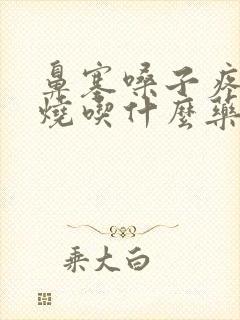 鼻塞嗓子疼
燒喫什麼藥
乘大白